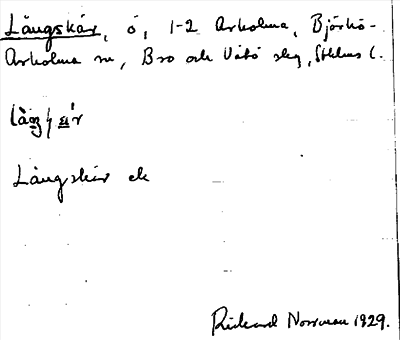 Långskär, ö, 1-2 Arholma, Björkö-
Arholma sn, Bro och Vätö skg, Sthlms l.
Långskär ek
Rickard Norrman 1929.